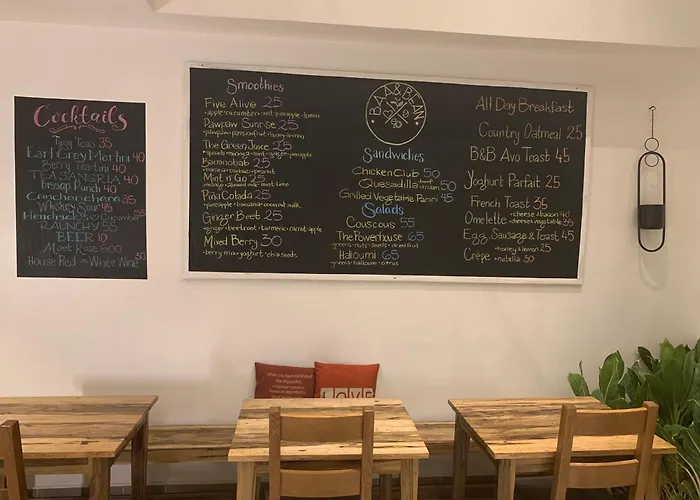 Cocktails
Teas 35
Earl Grey Martini 40
Berry Tartini 40
TEA SANGRIA 40
Punch 40
40
Whisky Sour 45
Hendricks Cucumber 55
RAUNCHY 55
BEER 10
Moet Rose 600
House Red or White Wine 30
Smoothies
Five Alive 25
apple • cucumber • mint • pineapple • lemon
Pawpaw Sunrise 25
pawpaw • passionfruit • honey
The Green Juice 25
mango • mint • ginger • pineapple
Bananabab 25
banana • peanut
Mint n Go 25
mango • almond milk • mint
Piña Colada 25
pineapple • banana • coconut milk
Ginger Beet 25
ginger • beetroot • turmeric • carrot • apple
Mixed Berry 30
berry mix • yoghurt • chia seeds
BAA & BEAN
Sandwiches
Chicken Club 50
Quesadilla chicken 50
Grilled Vegetable Panini 45
Salads
Couscous 55
The Powerhouse 65
greens • nuts • seeds • dried fruit
Halloumi 65
greens • halloumi • citrus
All Day Breakfast
Country Oatmeal 25
B&B Avo Toast 45
Yoghurt Parfait 25
French Toast 35
Omelette • cheese & bacon 40
• cheese & vegetable 35
Egg, Sausage & Toast 45
Crepe • honey & lemon 25
• nutella 30
LOVE